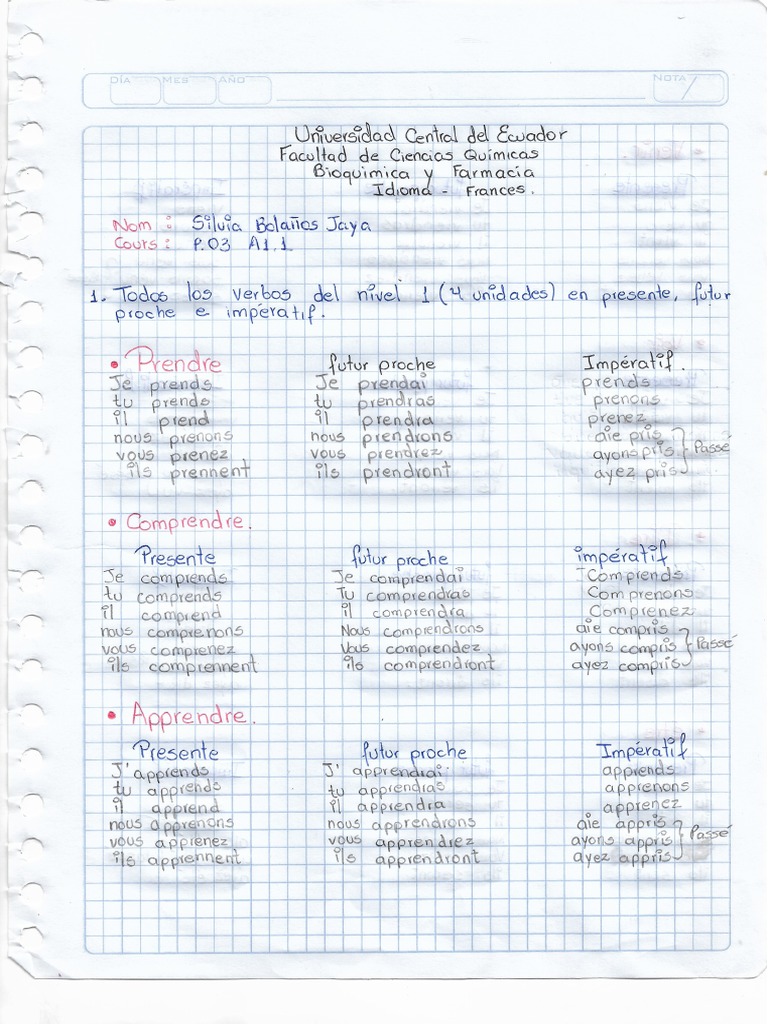 DÍA MES AÑO NOTA
Universidad Central del Ecuador
Facultad de Ciencias Químicas
Bioquimica y Farmacia
Idioma - Frances.
Nom : Silvia Bolaños Jaya
Cours : P.03 A1.1
1. Todos los verbos del nivel 1 (4 unidades) en presente, futur
proche e impératif.
• Prendre futur proche Impératif.
Je prends Je prendai prends
tu prends tu prendras prenons
il prend il prendra prenez
nous prenons nous prendrons aie pris
vous prenez vous prendrez ayons pris Passé
ils prennent ils prendront ayez pris
• Comprendre.
Presente futur proche impératif
Je comprends Je comprendai Comprends
tu comprends Tu comprendras Comprenons
il comprend il comprendra Comprenez
nous comprenons Nous comprendrons aie compris
vous comprenez Vous comprendez ayons compris Passé
ils comprennent ils comprendront ayez compris
• Apprendre.
Presente futur proche Impératif
J' apprends J' apprendrai apprends
tu apprends tu apprendras apprenons
il apprend il apprendra apprenez
nous apprenons nous apprendrons aie appris
vous apprenez vous apprendrez ayons appris Passé
ils apprennent ils apprendront ayez appris